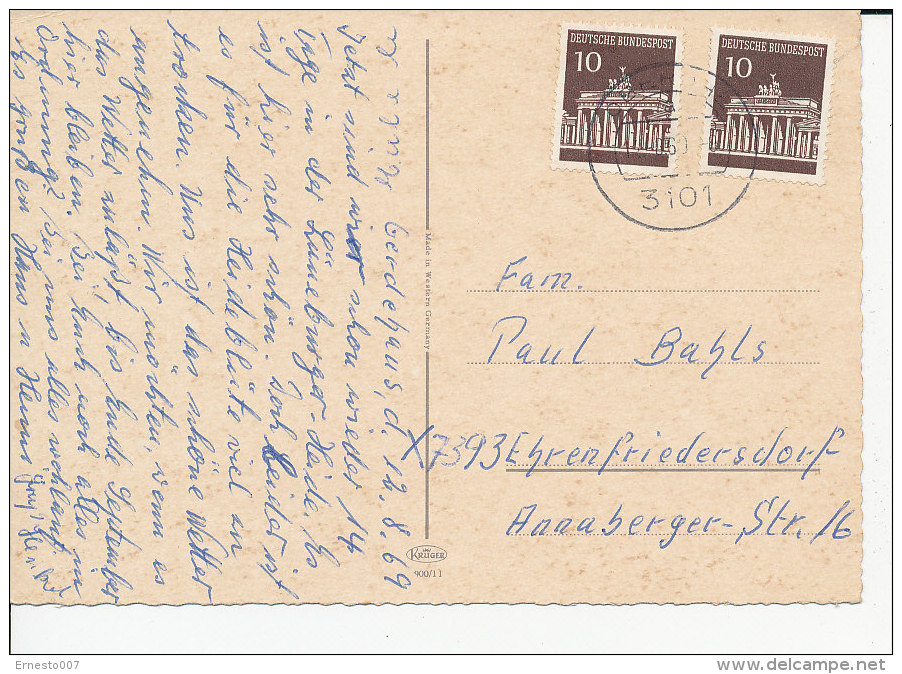 Oldendorf, d. 12.8.69
Jetzt sind wir schon wieder 14
Tage in der Lüneburger-Heide. Es
ist hier sehr schön. Doch leider ist
es für die Heideblüte viel zu
trocken. Uns ist das schöne Wetter
angenehm. Wir möchten, wenn es
das Wetter zuläßt, bis Ende September
hier bleiben. Bei Euch noch alles in
Ordnung? Bei uns alles wohlauf.
Es grüßen Hans u
DEUTSCHE BUNDESPOST
10
DEUTSCHE BUNDESPOST
10
3101
Made in Western Germany
Fam.
Paul Bahls
X7393 Ehrenfriedersdorf
Annaberger-Str. 16
KRÜGER
900/11
Ernesto007
www.delcampe.net